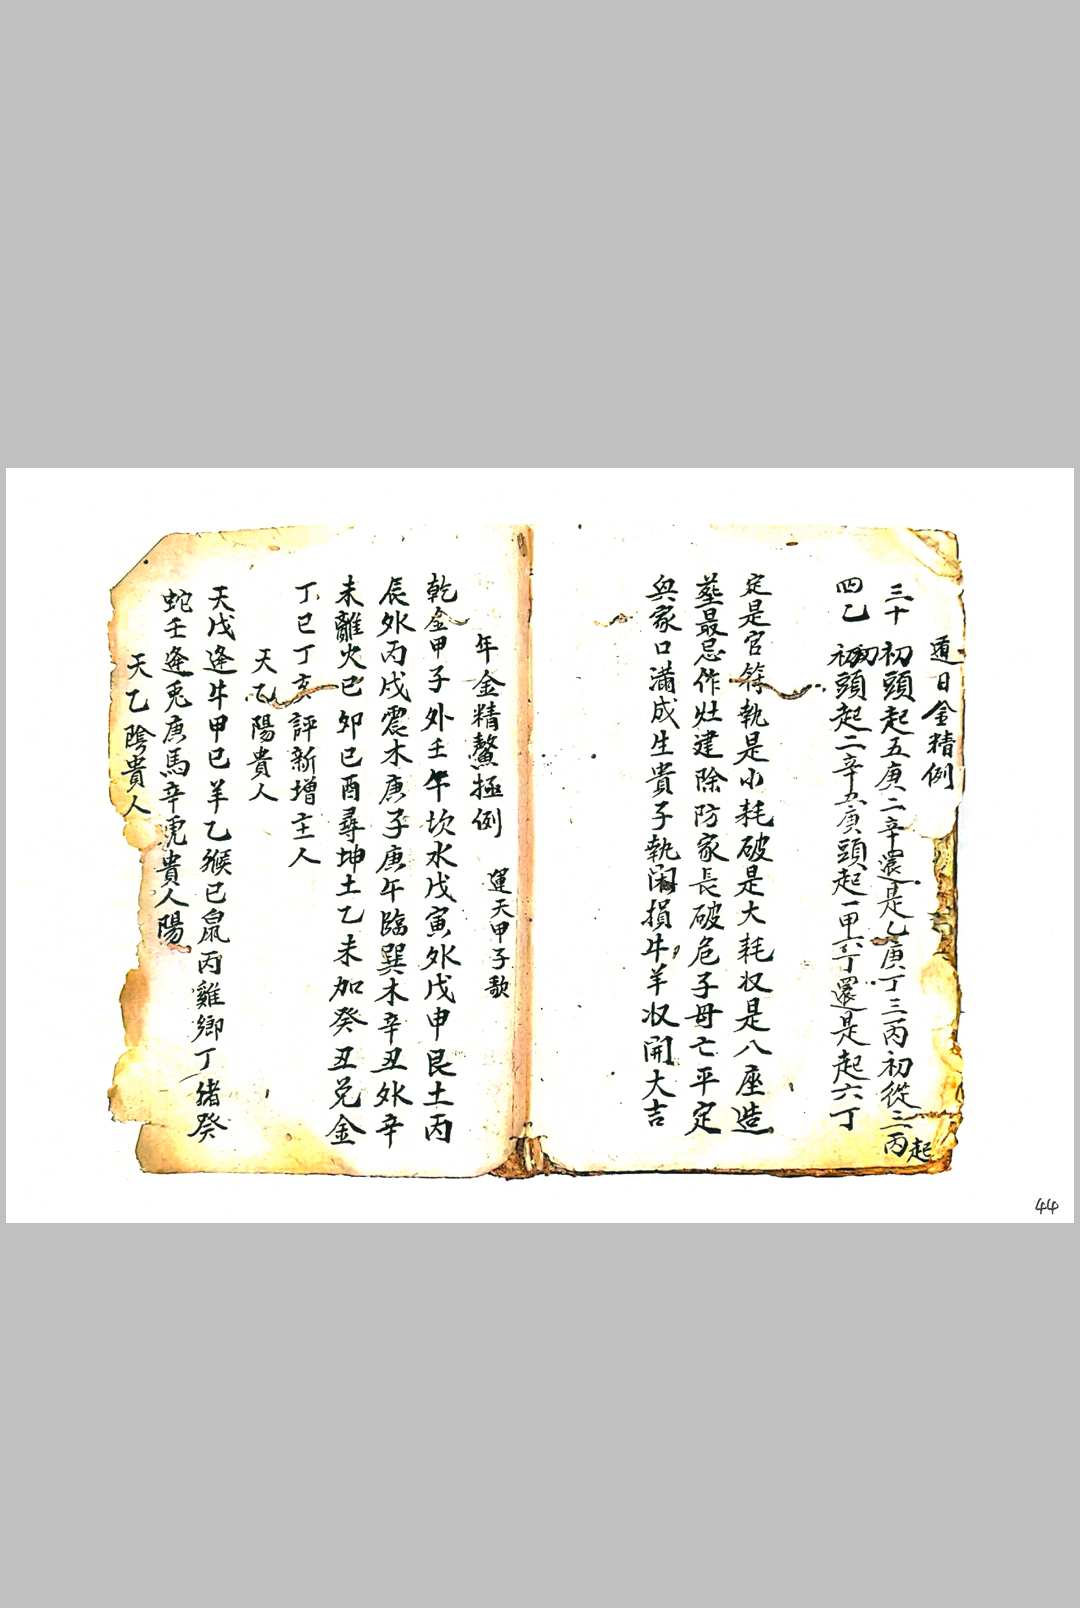 遁日金精例
三十 初頭起五庚二辛還是乙庚丁三丙初從三丙起
四乙 初頭起二辛五庚頭起一甲六丁還是起六丁
定是官符執是小耗破是大耗収是八座造
塟最忌作灶建除防家長破危子母亡平定
與家口滿成生貴子執閉損牛羊収開大吉
年金精鰲極例 運天甲子歌
乾金甲子外壬午坎水戊寅外戊申艮土丙
辰外丙戌震木庚子庚午臨巽木辛丑外辛
未離火己卯己酉尋坤土乙未加癸丑兌金
丁巳丁亥評新增主人
天乙陽貴人
天戊逢牛甲巳羊乙猴已鼠丙雞鄉丁猪癸
蛇壬逢兎庚馬辛虎貴人陽
天乙陰貴人
44